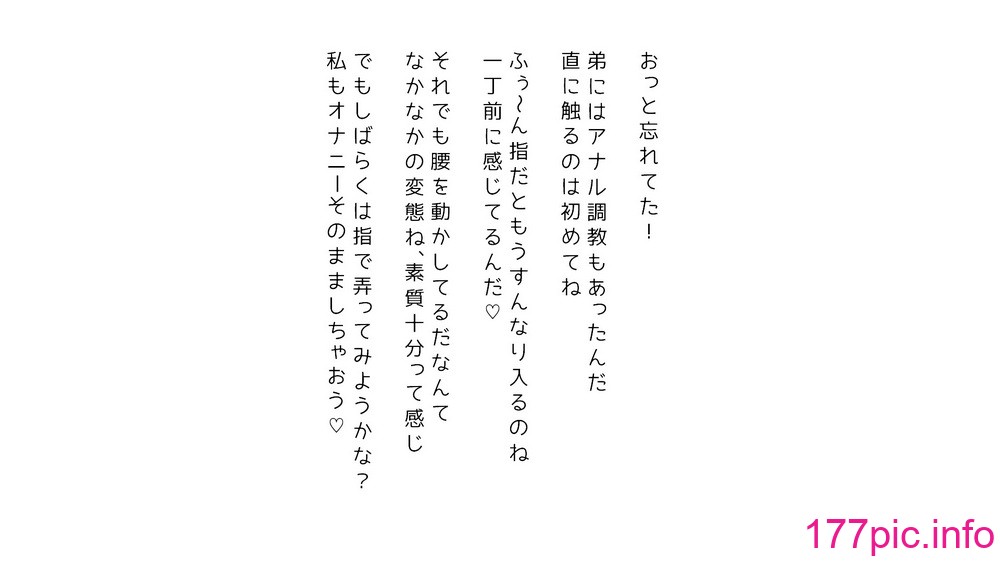 おっと忘れてた！
弟にはアナル調教もあったんだ
直に触るのは初めてね
ふぅ～ん指だともうすんなり入るのね
一丁前に感じてるんだ♡
それでも腰を動かしてるだなんて
なかなかの変態ね、素質十分って感じ
でもしばらくは指で弄ってみようかな？
私もオナニーそのまましちゃおう♡
177pic.info